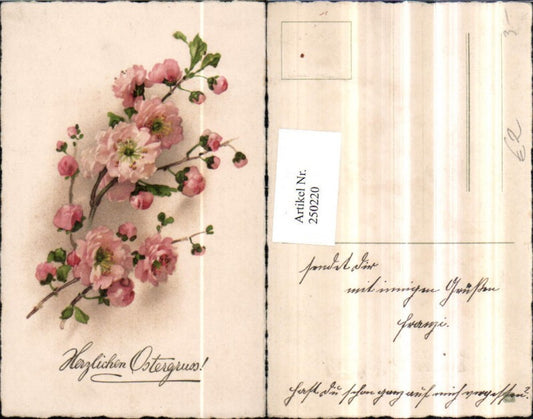 Herzlichen Ostergruss!
3.-
Artikel Nr.
250220
sendet dir
mit innigen Grüßen
Franzi.
hast du schon ganz auf mich vergessen?